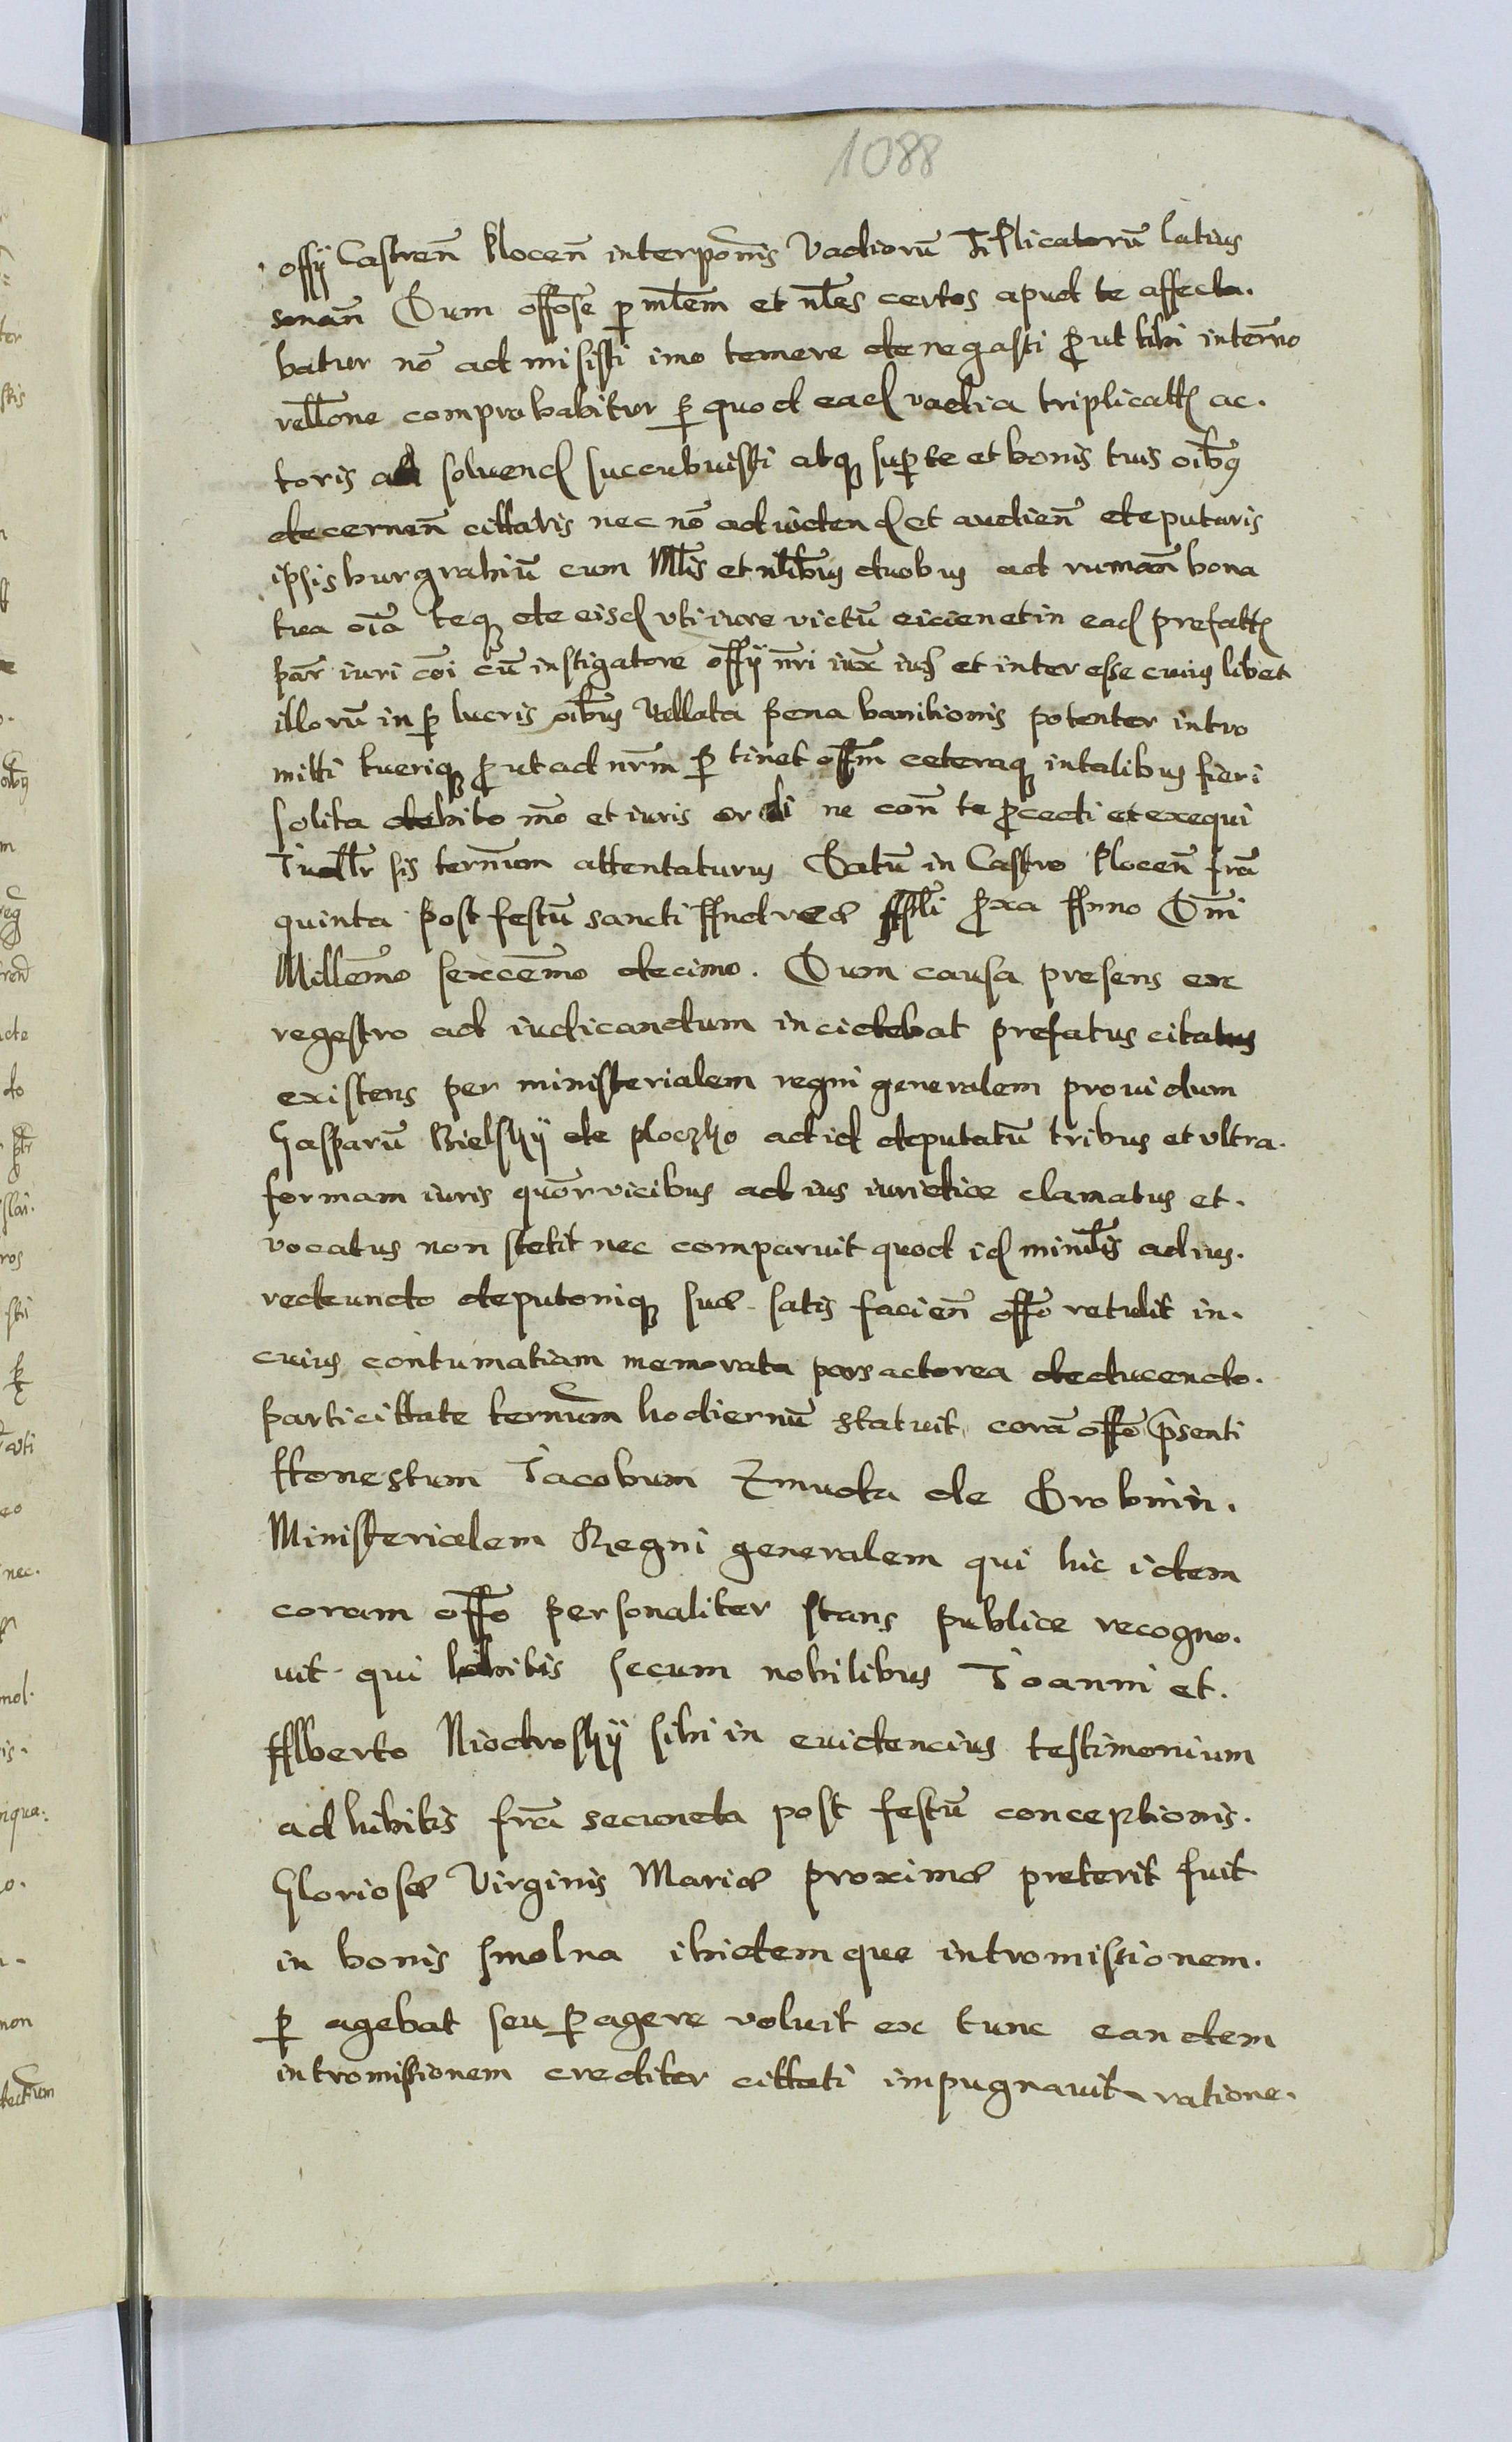 1088
offÿ Castren̄ Plocen̄ interpo͞nis Vadiorū Tri Plicatorū latius
sonan̄ Dum offose per ml̄em et nl̄es certos apud te affecta.
batur nō ad misisti imo temere de negasti prout tibi inter͞no
rell͞one comprobabitur per quod ead vadia triplicatt ac.
toris ad soluend succubuisti atq super te et bonis tuis oib9
decernen̄ cittaris nec nō ad uidend et audien̄ deputaris
ipsis burgrabiū cum Ml̄is et nl̄ibus duobus ad ruman̄ bona
tua oīa teq de eisd vti iure victū eicien et in ead prefatt
par̄ iuri cōi cū instigatore offÿ nr̄i iux̄ ius et inter esse cuius libet
illorū in per lucris oībus Vallata pena banitionis potenter intro
mitti tueriq prout ad nr̄m per tinet off̄m ceteraq in talibus fieri
solita debito mo͞ et iuris ordi ne con̄ te procedi et exequi
Iudl̄r sis ter͞num attentaturus Datū in Castro Plocen̄ fr̄ia
quinta post festū sancti Andreæ Apl̄i proxa Anno Dn̄i
Millem͞o sexcem͞o decimo. Dum causa presens ex
regestro ad iudicandum incidebat prefatus citatus
existens per ministerialem regni generalem prouidum
Gasparū Bielskÿ de ploczko ad id deputatū tribus et vltra.
formam iuris quor̄ vicibus ad ius iuridice clamatus et.
vocatus non stetit nec comparuit quod id minl̄is ad ius.
redeundo deputoniq suæ satis facien̄ offo retulit in.
cuius contumatiam memorata pars actorea deducendo.
parti cittate ternum hodiernū statuit corā offo prsenti
Honestum Jacobum Zmuda de Drobnin.
Ministerialem Regni generalem qui hic idem
coram offo personaliter stans publice recogno.
uit qui habitis secum nobilibus Joanni et.
Alberto Niedroskÿ sibi in euidencius testimonium
ad hibitis fr̄ia secunda post festū conceptionis.
Gloriosæ Virginis Mariæ proximæ preterit fuit
in bonis smolna ibidemque intromissionem.
per agebat seu per agere voluit ex tunc eandem
intromissionem creditor cittati impugnauit ratione.